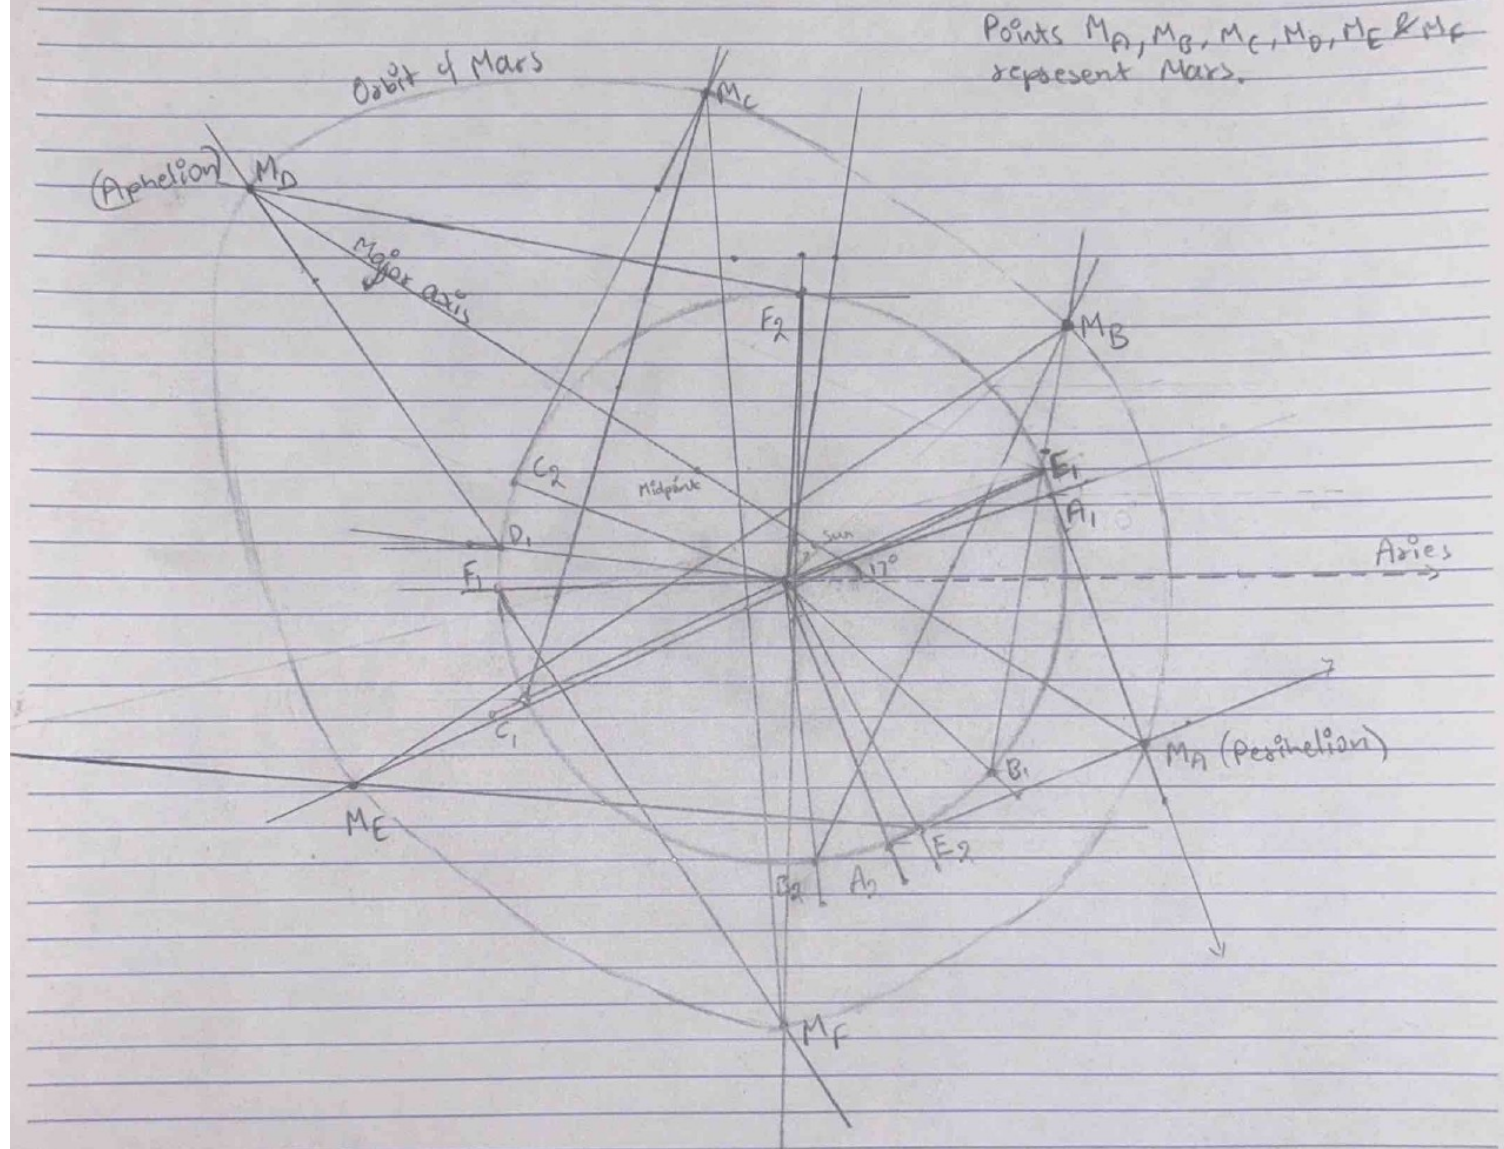 Points M_A, M_B, M_C, M_D, M_E & M_F
represent Mars.
Orbit of Mars
M_C
(Aphelion) M_D
Major axis
F_2
M_B
C_2
Midpoint
E_1
A_1
Sun
D_1
17°
Aries
F_1
C_1
M_A (Perihelion)
B_1
M_E
E_2
B_2
A_2
M_F